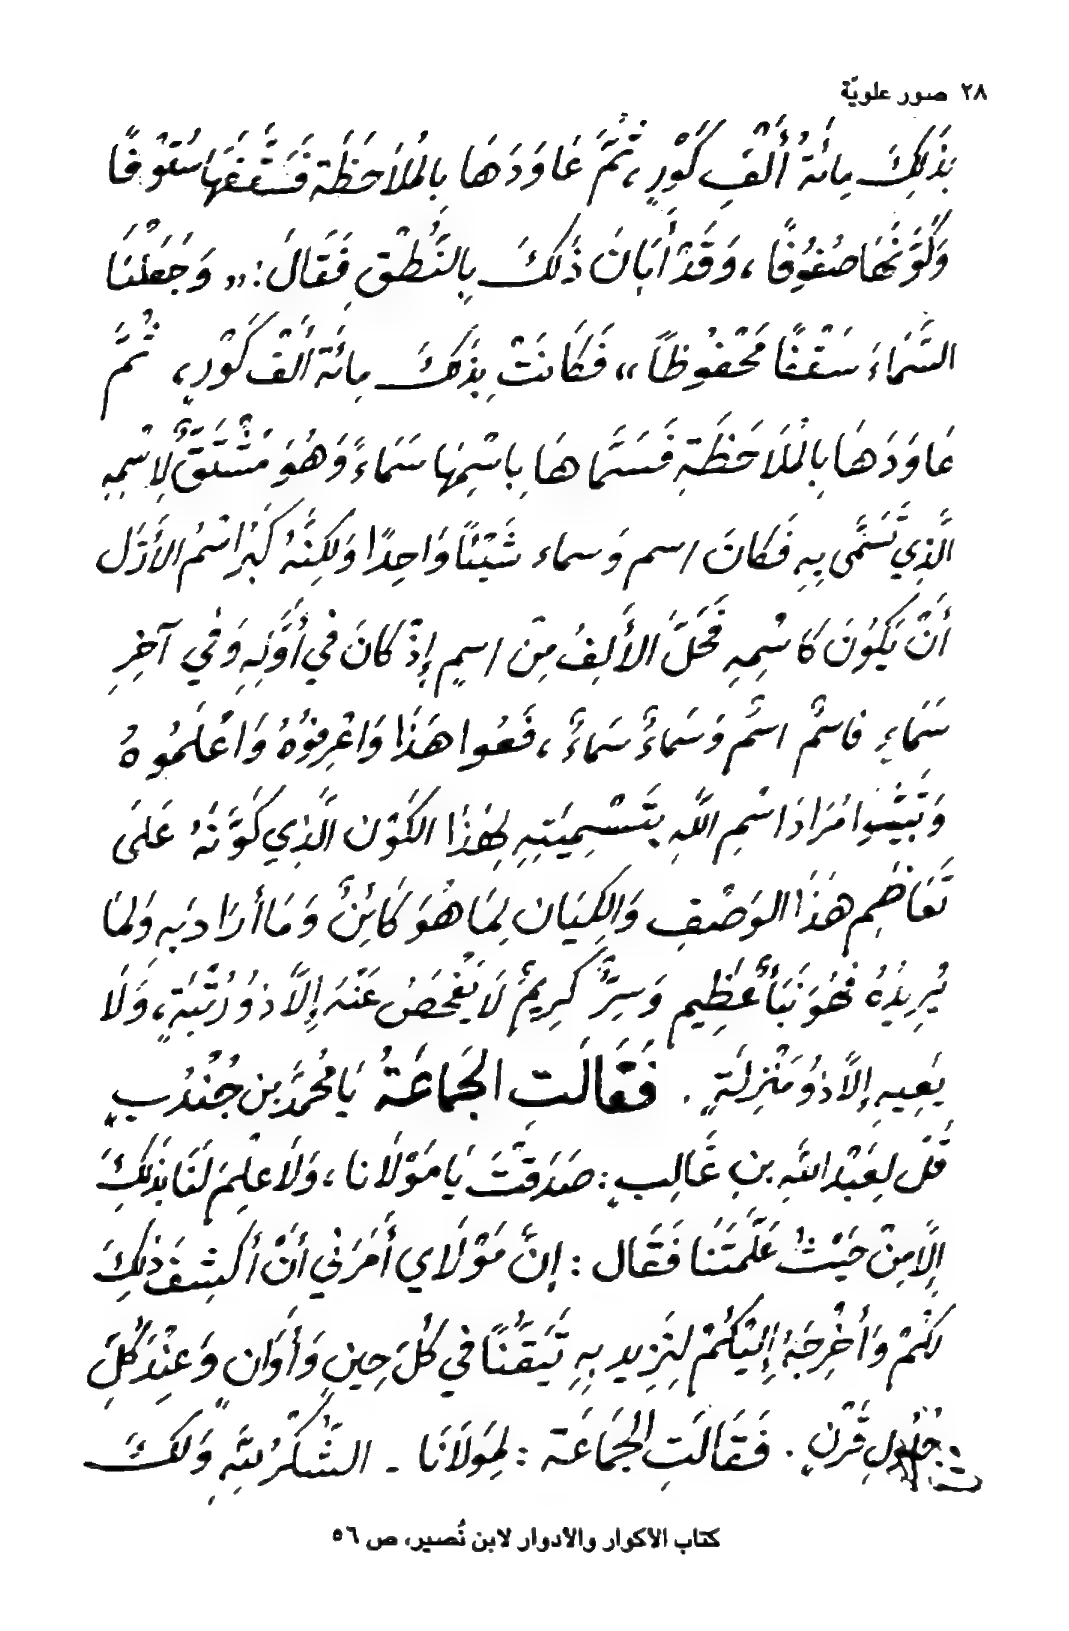 ٢٨ صور علويّة
بِذَلِكَ مِائَةُ أَلْفِ كَوْرٍ، ثُمَّ عَاوَدَهَا بِالْمُلاَحَظَةِ فَسَقَّفَهَا سُقُوفًا
وَكَوَّنَهَا صُفُوفًا، وَقَدْ أَبَانَ ذَلِكَ بِالنُّطْقِ فَقَالَ: «وَجَعَلْنَا
السَّمَاءَ سَقْفًا مَحْفُوظًا» فَكَانَتْ بِذَلِكَ مِائَةَ أَلْفِ كَوْرٍ، ثُمَّ
عَاوَدَهَا بِالْمُلَاحَظَةِ فَسَمَّاهَا بِاسْمِهَا سَمَاءً وَهُوَ مُشْتَقٌّ لِاسْمِهِ
الَّذِي تَسَمَّى بِهِ فَكَانَ اسم وَسماء شَيْئًا وَاحِدًا وَلَكِنَّهُ كَبَّرَ اسْمُ الأَوَّل
أَنْ يَكُونَ كَاسْمِهِ فَحَلَّ الأَلِفُ مِنْ اسمٍ إِذْ كَانَ فِي أَوَّلِهِ وَفِي آخِرِ
سَمَاءٍ فاسْمٌ اسْمٌ وَسَمَاءٌ سَمَاءٌ، فَعُوا هَذَا وَاعْرِفُوهُ وَاعْلَمُوهُ
وَتَبَيَّنُوا مُرَادَ اسْمِ اللَّهِ بِتَسْمِيَتِهِ لِهَذَا الكَوْنِ الَّذِي كَوَّنَهُ عَلَى
تَعَاظُمِ هَذَا الوَصْفِ وَالكِيَان لِمَا هُوَ كَائِنٌ وَمَا أَرَادَ بِهِ وَلِمَا
يُرِيدُهُ فَهُوَ نَبَأٌ عَظِيمٌ وَسِرٌّ كَرِيمٌ لَا يَفْحَصُ عَنْهُ إِلاَّ ذُو رُتْبَةٍ، وَلَا
يَعِيهِ إِلاَّ ذُو مَنْزِلَةٍ. فَقَالَتِ الجَمَاعَةُ يَا مُحَمَّدُ بن جُنْدُبٍ
قُلْ لِعَبْدِ اللَّهِ بنِ غَالِبٍ: صَدَقْتَ يَا مَوْلَانا، وَلَا عِلْمَ لَنَا بِذَلِكَ
إِلَّا مِنْ حَيْثُ عَلَّمْتَنَا فَقَال: إِنَّ مَوْلَاي أَمَرَنِي أَنْ أَكْشِفَ ذَلِكَ
لَكُمْ وَأُخْرِجَهُ إِلَيْكُمْ لِنَزِيد بِهِ تَيَقُّنًا فِي كُلِّ حِينٍ وَأَوَانٍ وَعِنْدَ كُلِّ
قَرْنٍ. فَقَالَتِ الجَمَاعَة: لِمَوْلَانَا - الشُّكْرُ لِلَّهِ وَلَكَ
كتاب الأكوار والأدوار لابن نُصير، ص ٥٦